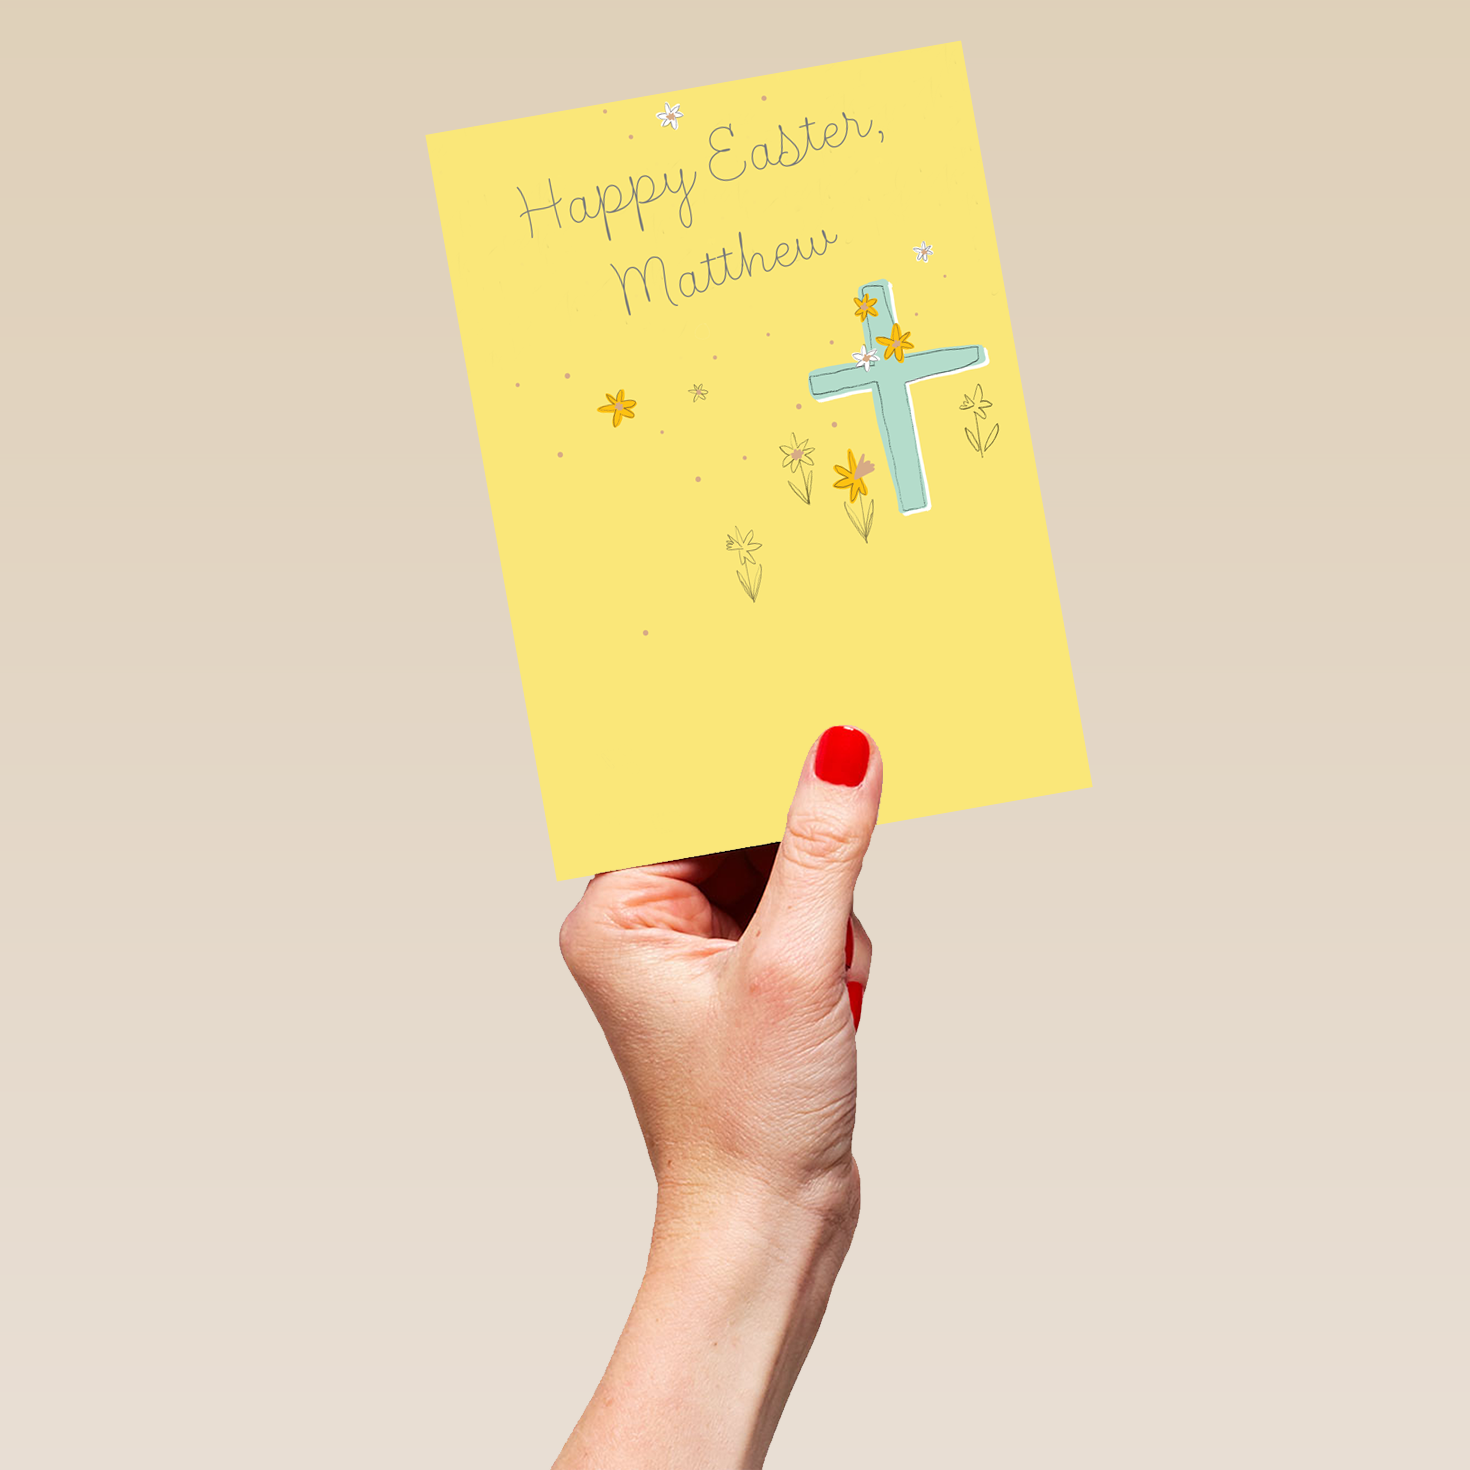 Happy Easter,
Matthew